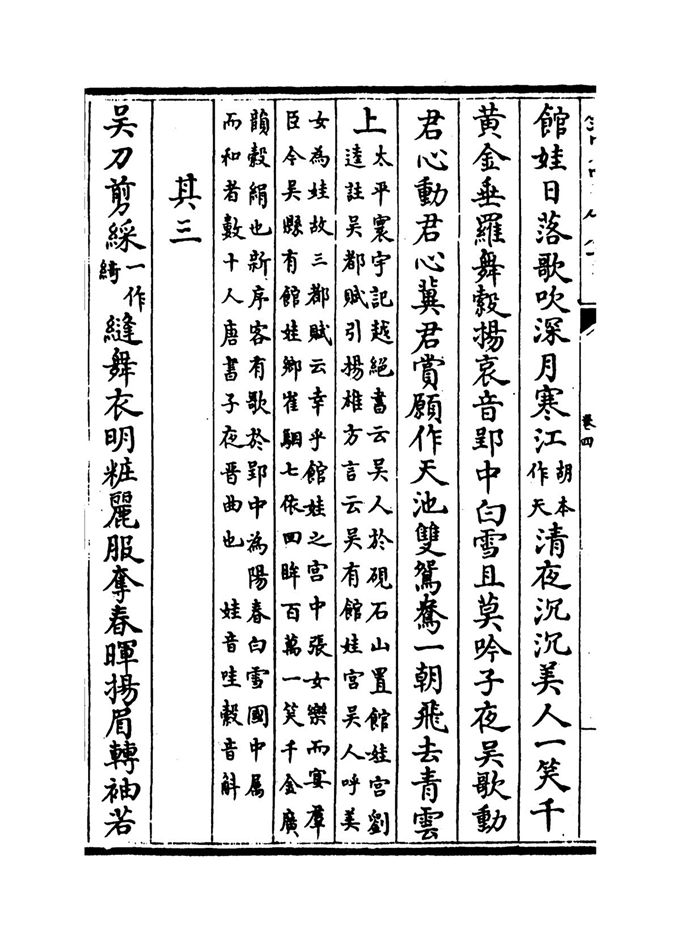 館娃日落歌吹深月寒江胡本作天清夜沉沉美人一笑千
黄金垂羅舞縠揚哀音郢中白雪且莫吟子夜吳歌動
君心動君心冀君賞願作天池雙鴛鴦一朝飛去青雲
上太平寰宇記越絶書云吳人於硯石山置館娃宫劉
逵註吳都賦引揚雄方言云吳有館娃宫吳人呼美
女為娃故三都賦云幸乎館娃之宫中張女樂而宴羣
臣今吳縣有館娃鄉崔駰七依回眸百萬一笑千金廣
韻縠絹也新序客有歌於郢中為陽春白雪國中屬
而和者數十人唐書子夜晉曲也 娃音哇縠音斛
其三
吳刀剪綵一作綺縫舞衣明粧麗服奪春暉揚眉轉袖若
卷四